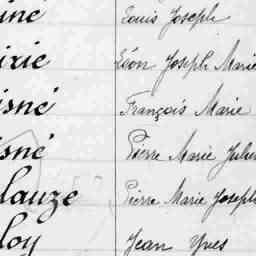 iné Louis Joseph
irie Léon Joseph Marie
isné François Marie
isné Pierre Marie Julien
lauze Pierre Marie Joseph
loy Jean Yves